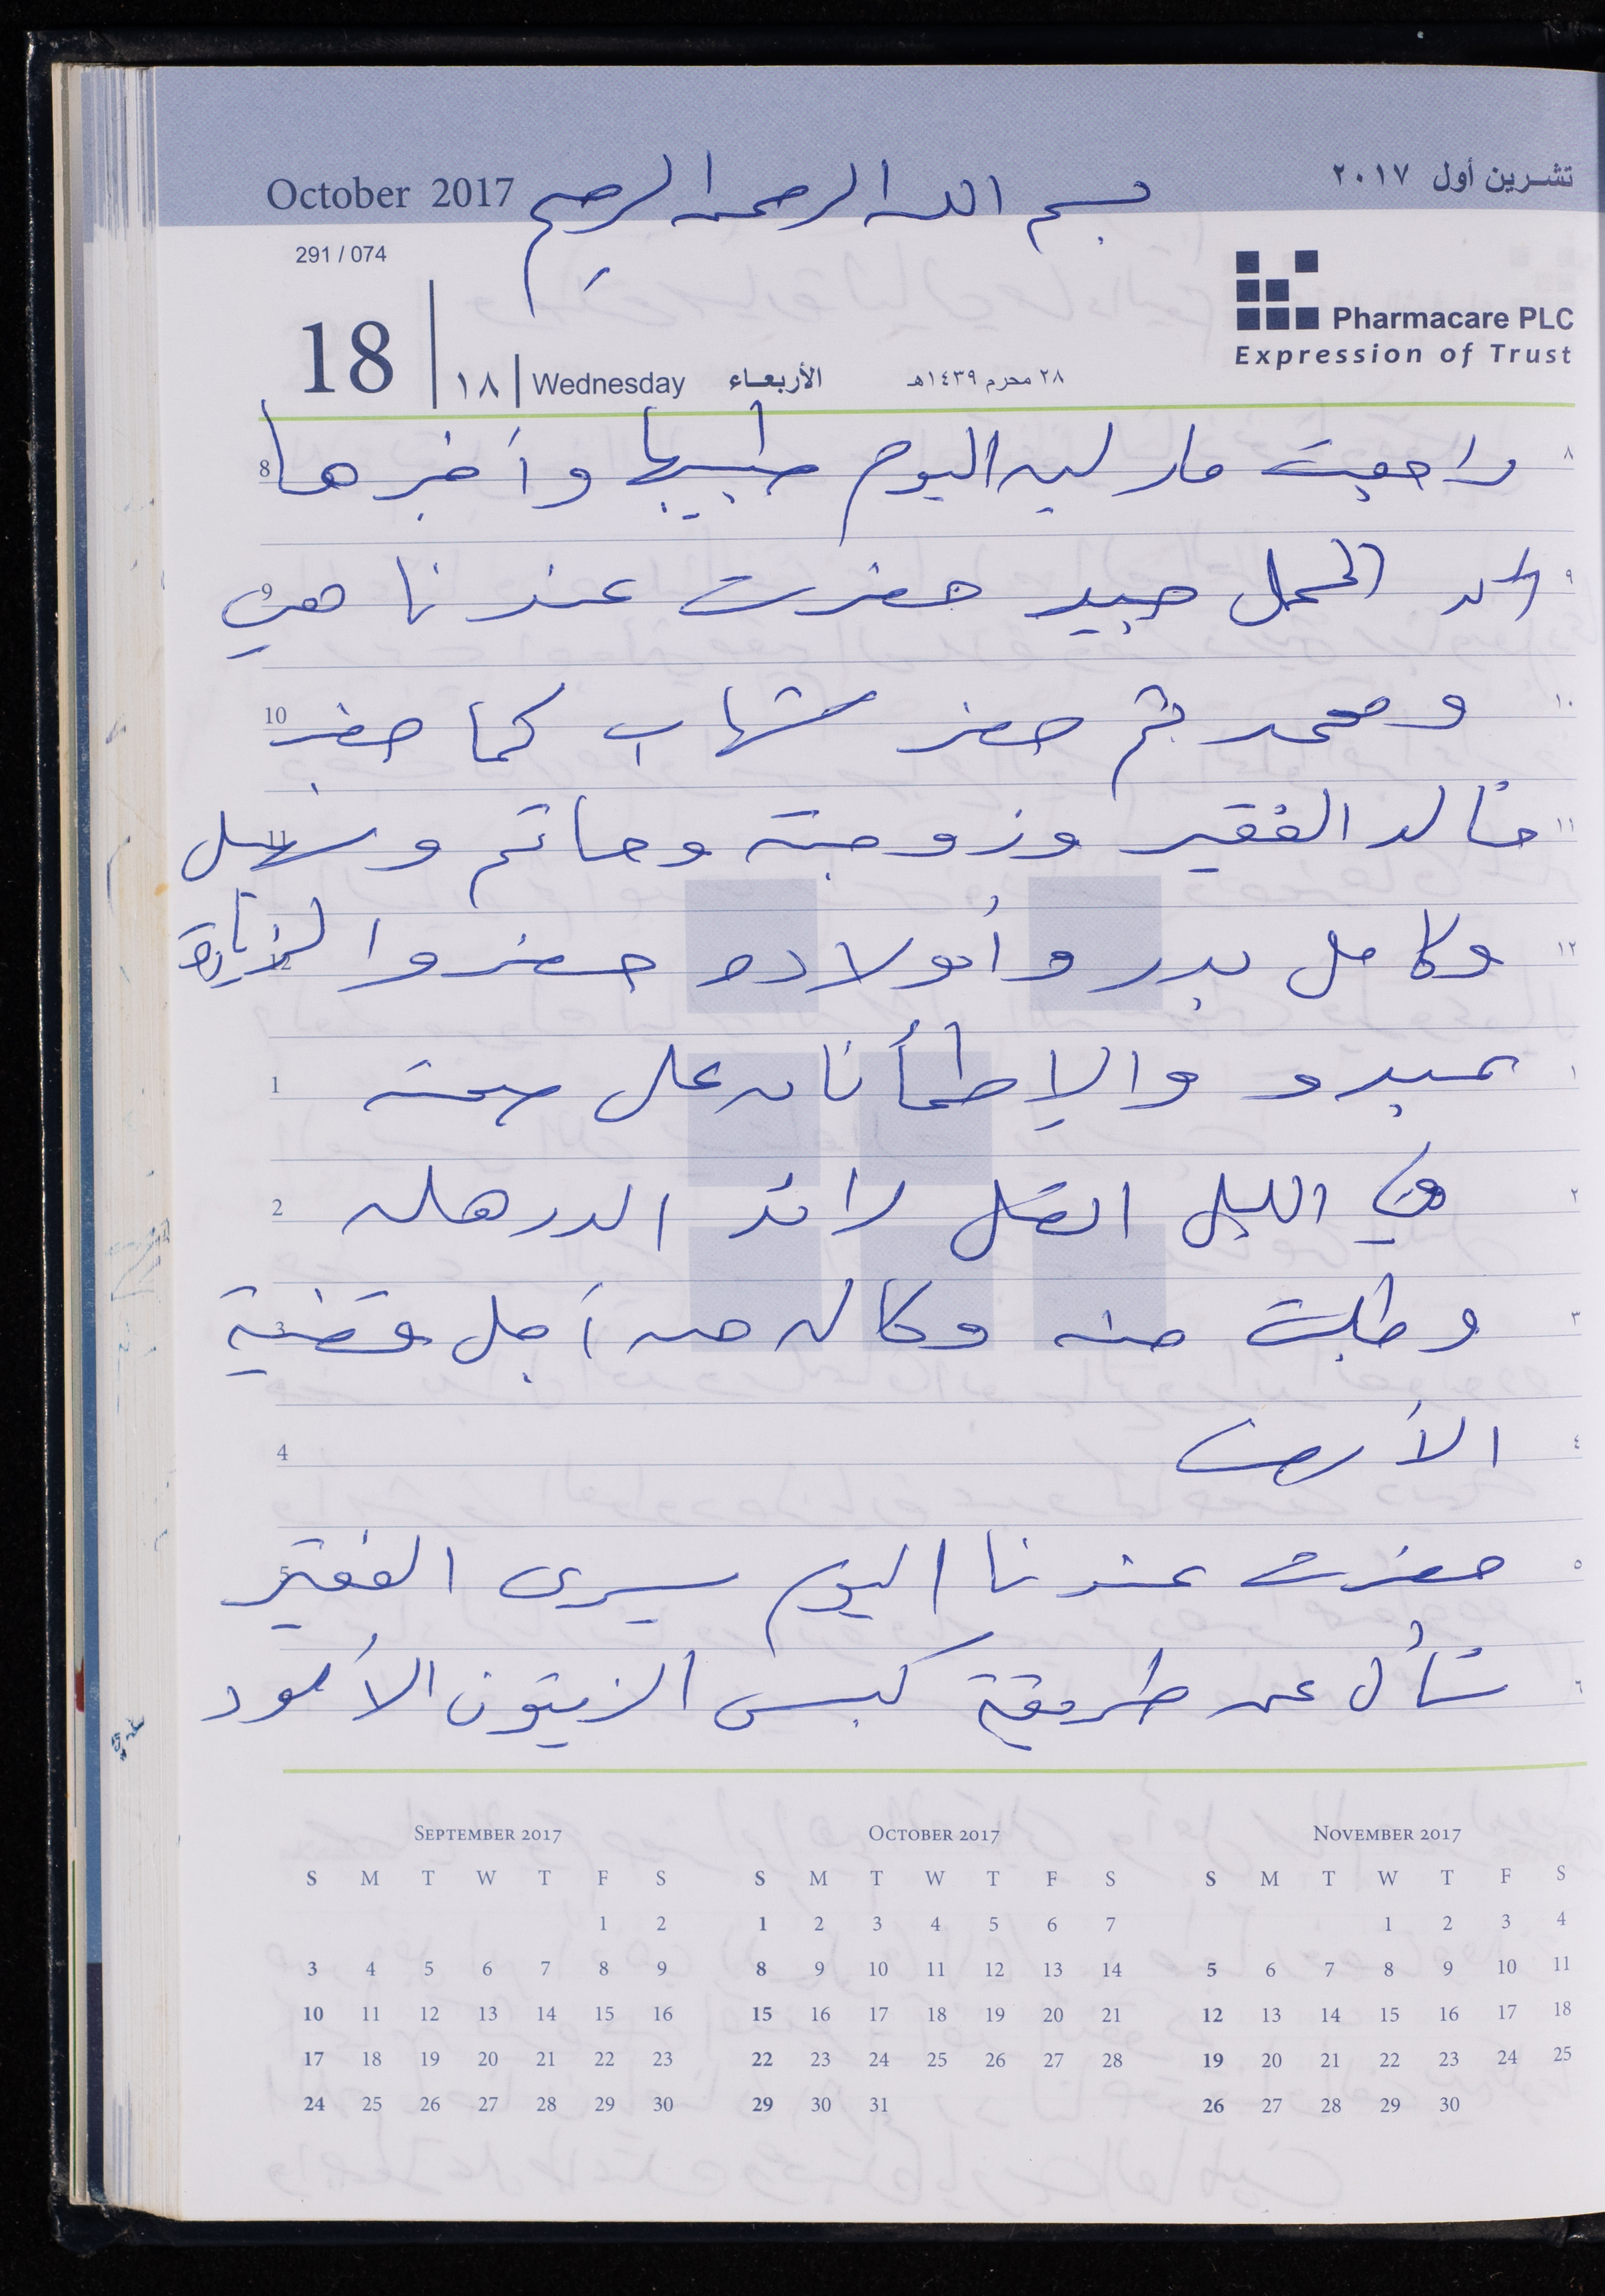 تشرين أول ٢٠١٧
October 2017
بسم الله الرحمن الرحيم
291 / 074
Pharmacare PLC
Expression of Trust
18 | ١٨ | Wednesday الأربعاء ٢٨ محرم ١٤٣٩هـ
٨ راجعت مارلين اليوم طبيبها وأخبرها 8
٩ الحمل جيد حضرت عندنا هي 9
١٠ ومحمد ثم حضر شهاب كما حضر 10
١١ خالد الفقير وزوجته وحاتم وسهل 11
١٢ وكامل بدر وأولاده حضروا لزيارة 12
١ عبده والإطمأنان على صحته 1
٢ في الليل اتصل رائد الدرهلي 2
٣ وطلبت منه وكاله من أجل قضية 3
٤ الأرض 4
٥ حضرت عندنا اليوم يسرى الفقير 5
٦ تسأل عن طريقة كبس الزيتون الأسود
September 2017
S M T W T F S
1 2
3 4 5 6 7 8 9
10 11 12 13 14 15 16
17 18 19 20 21 22 23
24 25 26 27 28 29 30
October 2017
S M T W T F S
1 2 3 4 5 6 7
8 9 10 11 12 13 14
15 16 17 18 19 20 21
22 23 24 25 26 27 28
29 30 31
November 2017
S M T W T F S
1 2 3 4
5 6 7 8 9 10 11
12 13 14 15 16 17 18
19 20 21 22 23 24 25
26 27 28 29 30